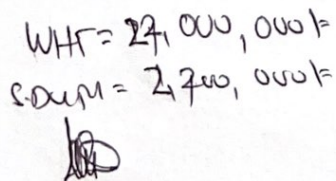 WHT = 27,000,000/=
S.Duty = 2,700,000/=